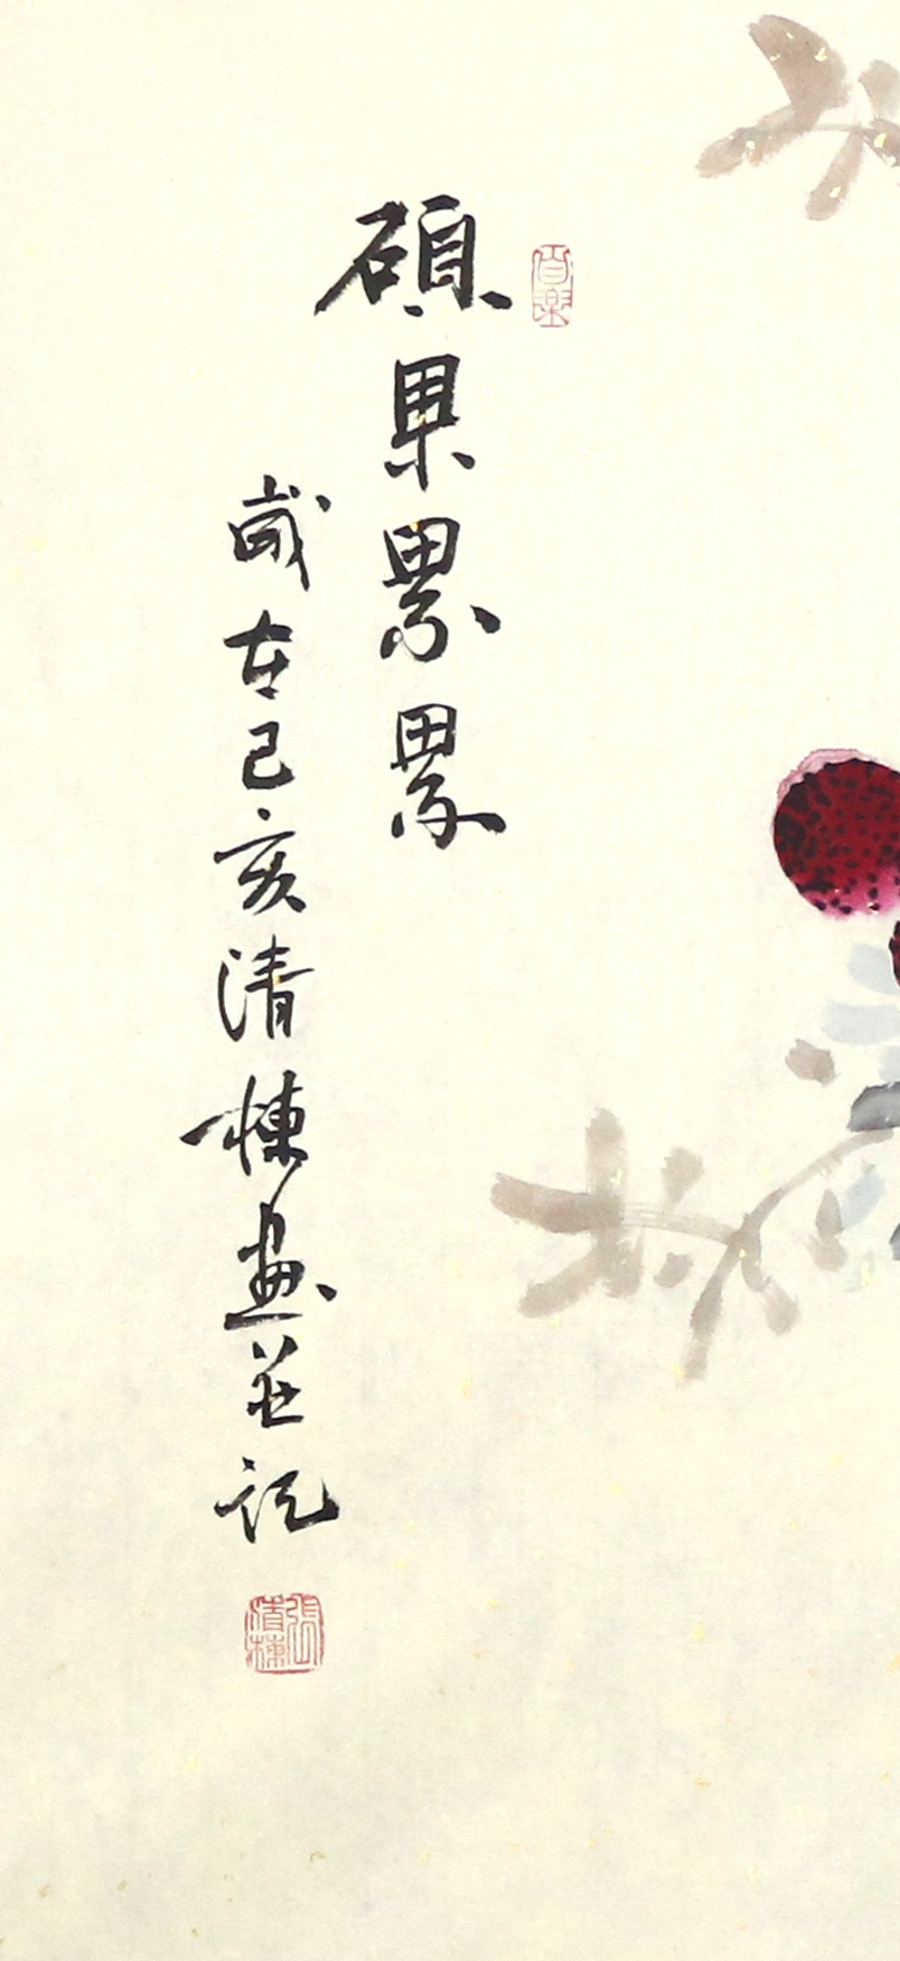 碩果累累
歲在己亥清棟畫並記
張清棟